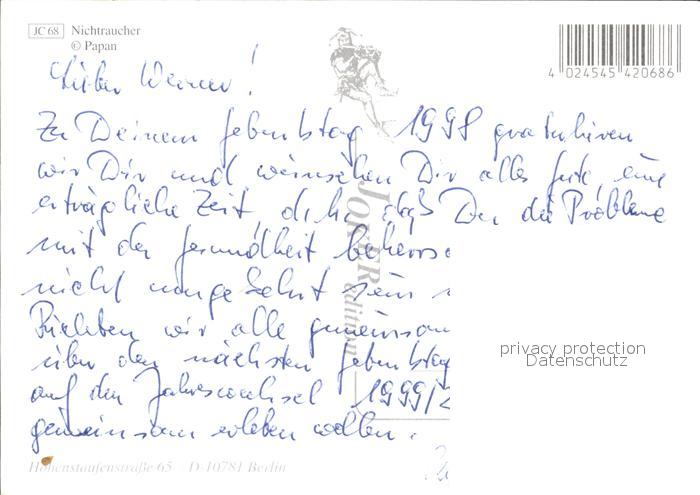 JC 68 Nichtraucher
© Papan
4 024545 420686
Lieber Werner!
Zu Deinem Geburtstag 1998 gratulieren
wir Dir und wünschen Dir alles Gute, eine
erträgliche Zeit d.h. daß Du die Probleme
mit der Gesundheit beherrs
nicht umgekehrt sein
wir alle gemeinsam
über den nächsten Geburtstag
auf den Jahreswechsel 1999/2
gemeinsam erleben wollen.
JOKER edition
privacy protection
Datenschutz
Hohenstaufenstraße 65 D-10781 Berlin